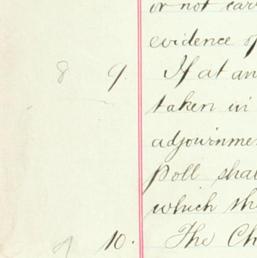 or not
evidence of
8 9. If at an
taken in
adjournme
Poll shal
which the
9 10. The Ch